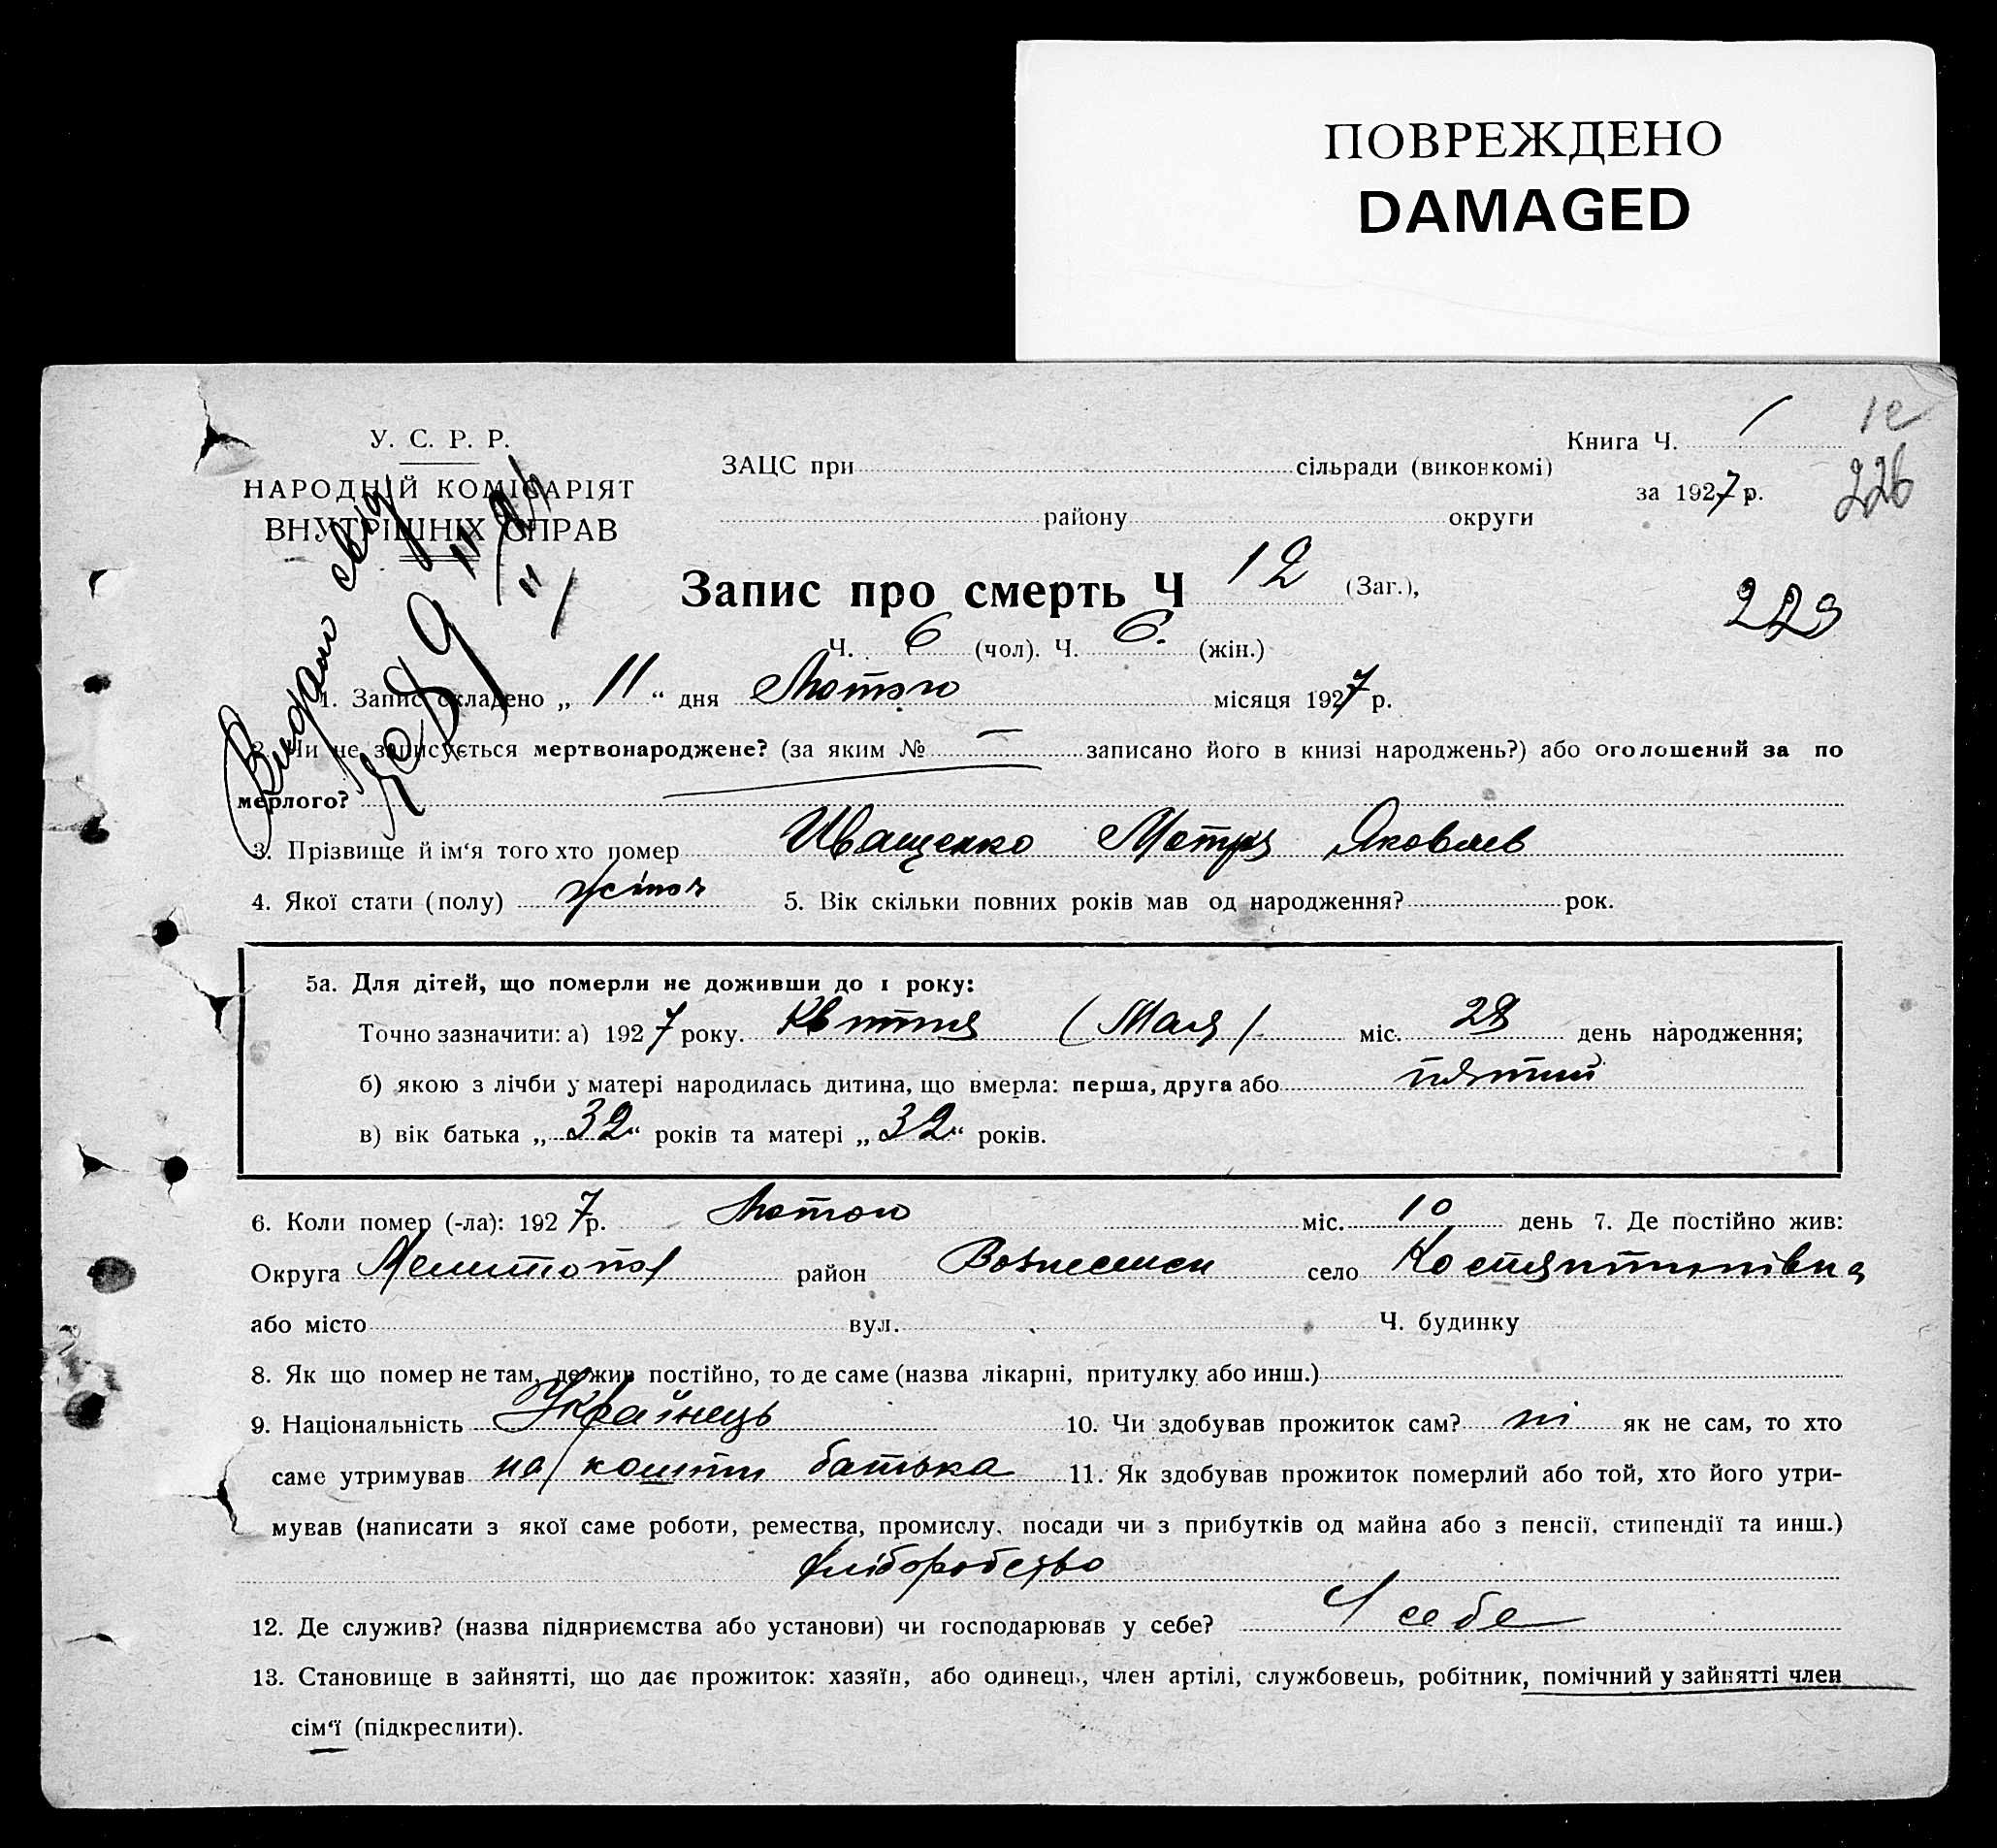 ПОВРЕЖДЕНО
DAMAGED
У. С. Р. Р.
НАРОДНІЙ КОМІСАРІЯТ
ВНУТРІШНІХ СПРАВ
Видано свід
ЗАЦС при сільради (виконкомі)
району округи
Книга Ч. 1
за 1927 р.
226
223
Запис про смерть Ч 12 (Заг.),
Ч. 6 (чол). Ч. 6. (жін.)
1. Запис складено „ 11 “ дня Лютого місяця 1927 р.
2. Чи не записується мертвонароджене? (за яким № — записано його в книзі народжень?) або оголошений за по
мерлого?
3. Прізвище й ім‘я того хто помер Иващенко Мотря Яковлев
4. Якої стати (полу) жіноч 5. Вік скільки повних років мав од народження? рок.
5а. Для дітей, що померли не доживши до 1 року:
Точно зазначити: а) 1927 року. Квітня (Мая) міс. 28 день народження;
б) якою з лічби у матері народилась дитина, що вмерла: перша, друга або пятий
в) вік батька „ 32 “ років та матері „ 32 “ років.
6. Коли помер (-ла): 1927 р. Лютого міс. 10 день 7. Де постійно жив:
Округа Мелитопол район Вознесенск село Костянтинівка
або місто вул. Ч. будинку
8. Як що помер не там, де жив постійно, то де саме (назва лікарні, притулку або инш.)
9. Національність Українець 10. Чи здобував прожиток сам? ні як не сам, то хто
саме утримував на кошти батька 11. Як здобував прожиток померлий або той, хто його утри-
мував (написати з якої саме роботи, ремества, промислу, посади чи з прибутків од майна або з пенсії, стипендії та инш.)
хліборобство
12. Де служив? (назва підприємства або установи) чи господарював у себе? У себе
13. Становище в зайнятті, що дає прожиток: хазяїн, або одинець, член артілі, службовець, робітник, помічний у зайнятті член
сім‘ї (підкреслити).